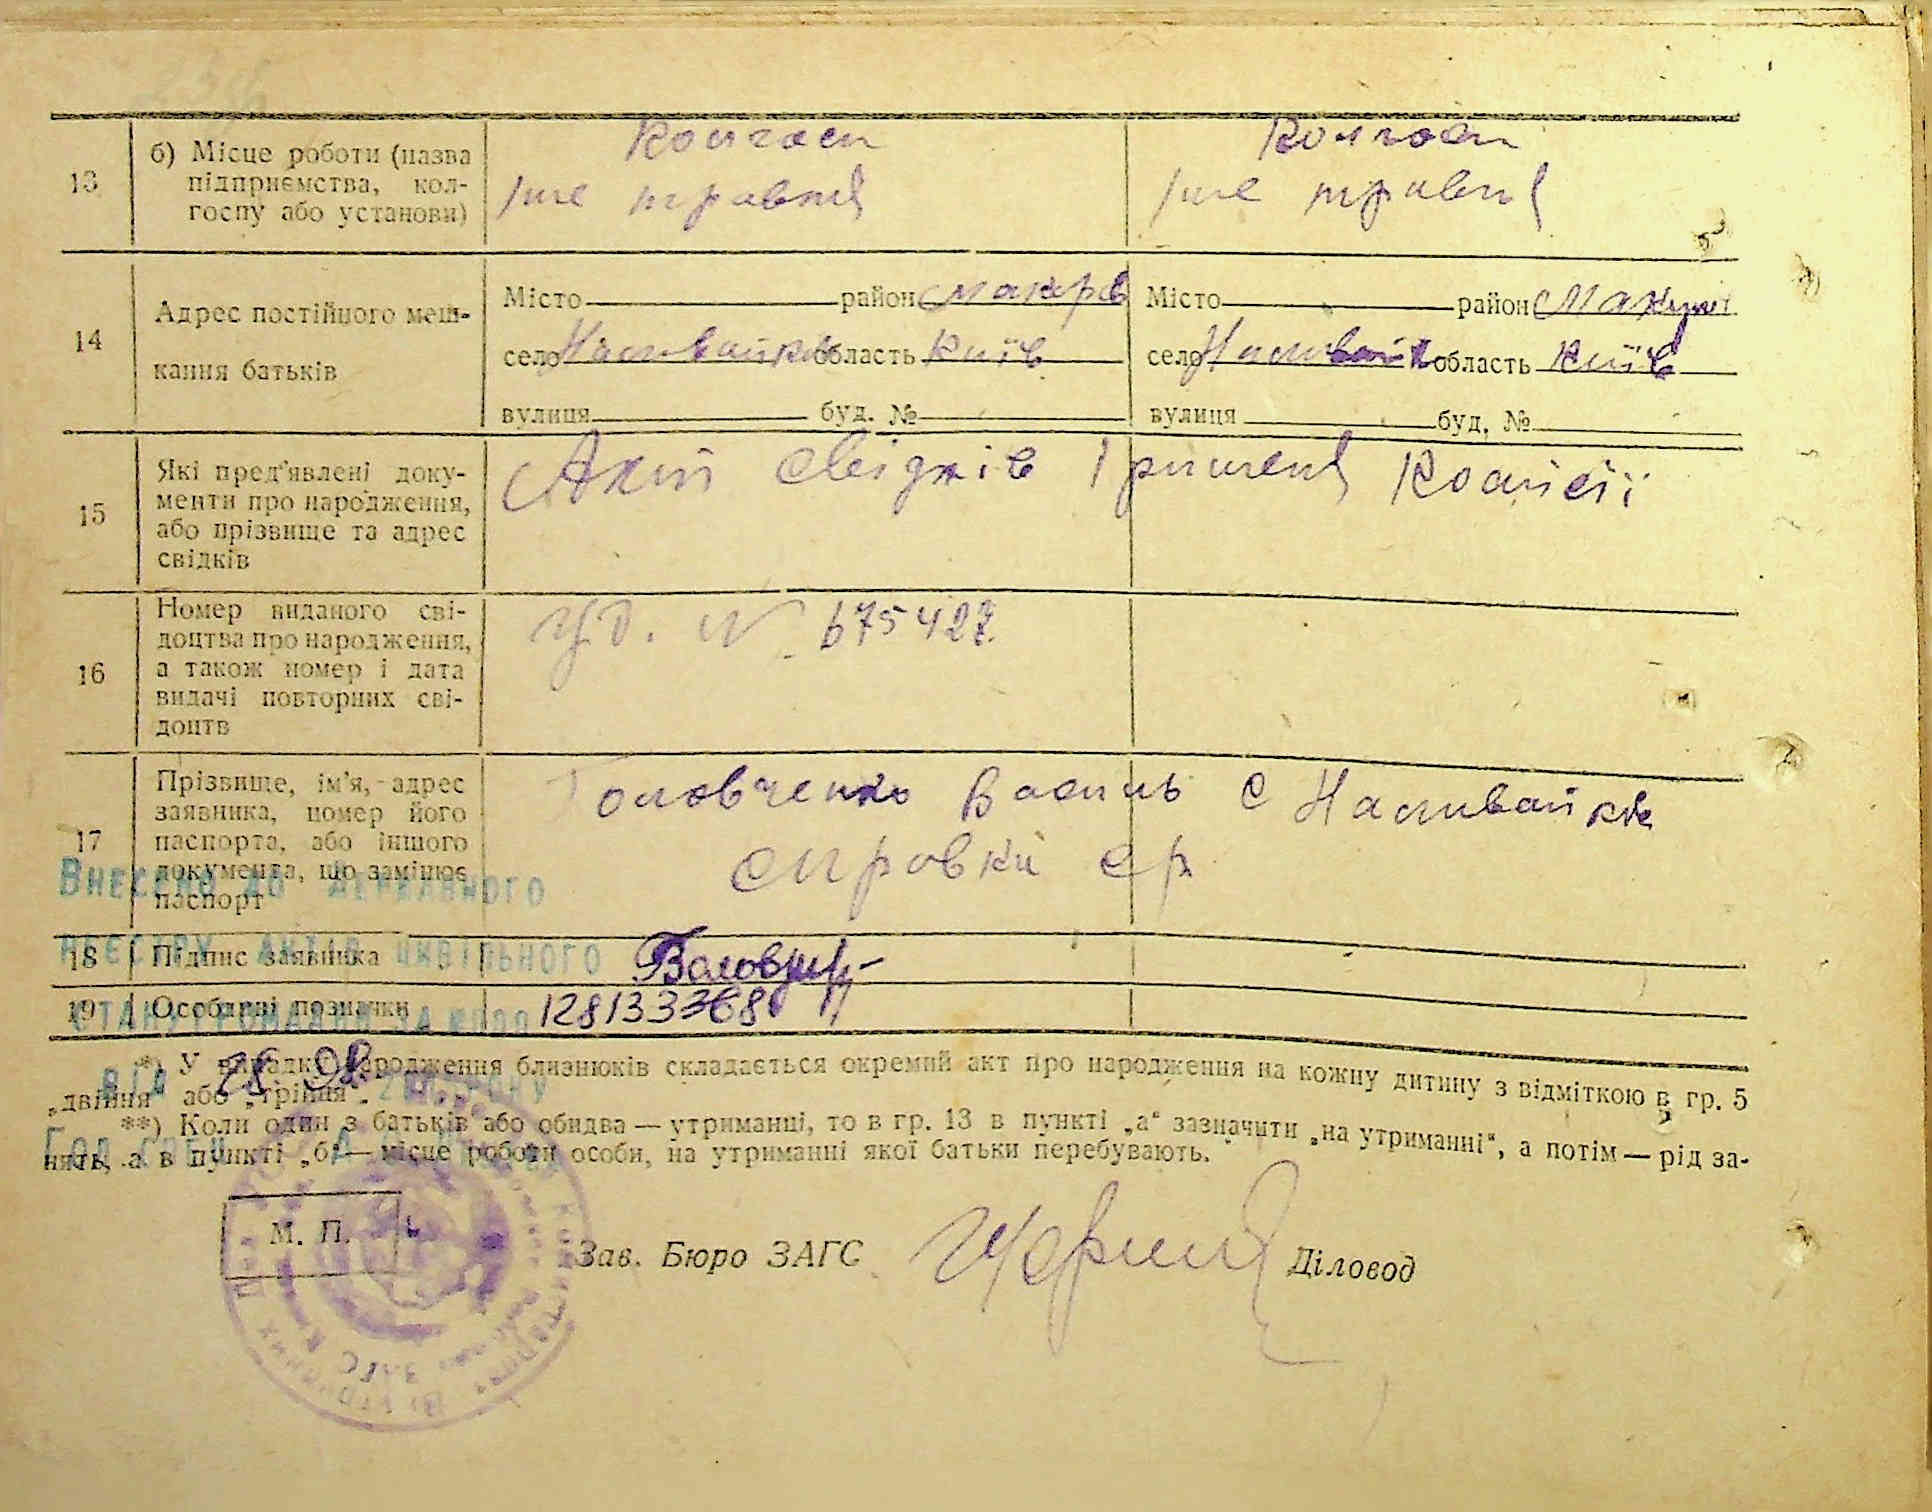 13
б) Місце роботи (назва
підприємства, кол-
госпу або установи)
Колгосп
1ше травня
Колгосп
1ше травня
14
Адрес постійного меш-
кання батьків
Місто район Макарів
село Наливайків область Київ
вулиця буд. №
Місто район Макарів
село Наливайк область Київ
вулиця буд. №
15
Які пред'явлені доку-
менти про народження,
або прізвище та адрес
свідків
Акт свідків і рішення Комісії
16
Номер виданого сві-
доцтва про народження,
а також номер і дата
видачі повторних сві-
доцтв
уд. № 675427
17
Прізвище, ім'я, адрес
заявника, номер його
паспорта, або іншого
документа, що замінює
паспорт
Головченко Василь с Наливайків
справки ср
18
Підпис заявника
19
Особливі позначки
128133368
Внесено до Державного
реєстру актів цивільного
стану громадян за №
від 28 08 року
*) У випадку народження близнюків складається окремий акт про народження на кожну дитину з відміткою в гр. 5
„двійня" або „трійня".
**) Коли один з батьків або обидва — утриманці, то в гр. 13 в пункті „а" зазначити „на утриманні", а потім — рід за-
нять, а в пункті „б" — місце роботи особи, на утриманні якої батьки перебувають.
М. П.
Зав. Бюро ЗАГС
Діловод
ЗАГС